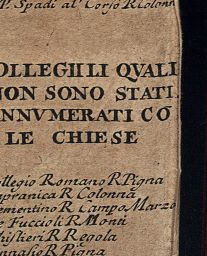 P. Spadi al Corso R Colonn
OLLEGII LI QVALI
NON SONO STATI
NNVMERATI CÕ
LE CHIESE
llegio Romano R Pigna
pranica R Colonna
ementino R Campo Marzo
e Fuccioli R Monti
hislieri R Regola
nnalio R Pigna